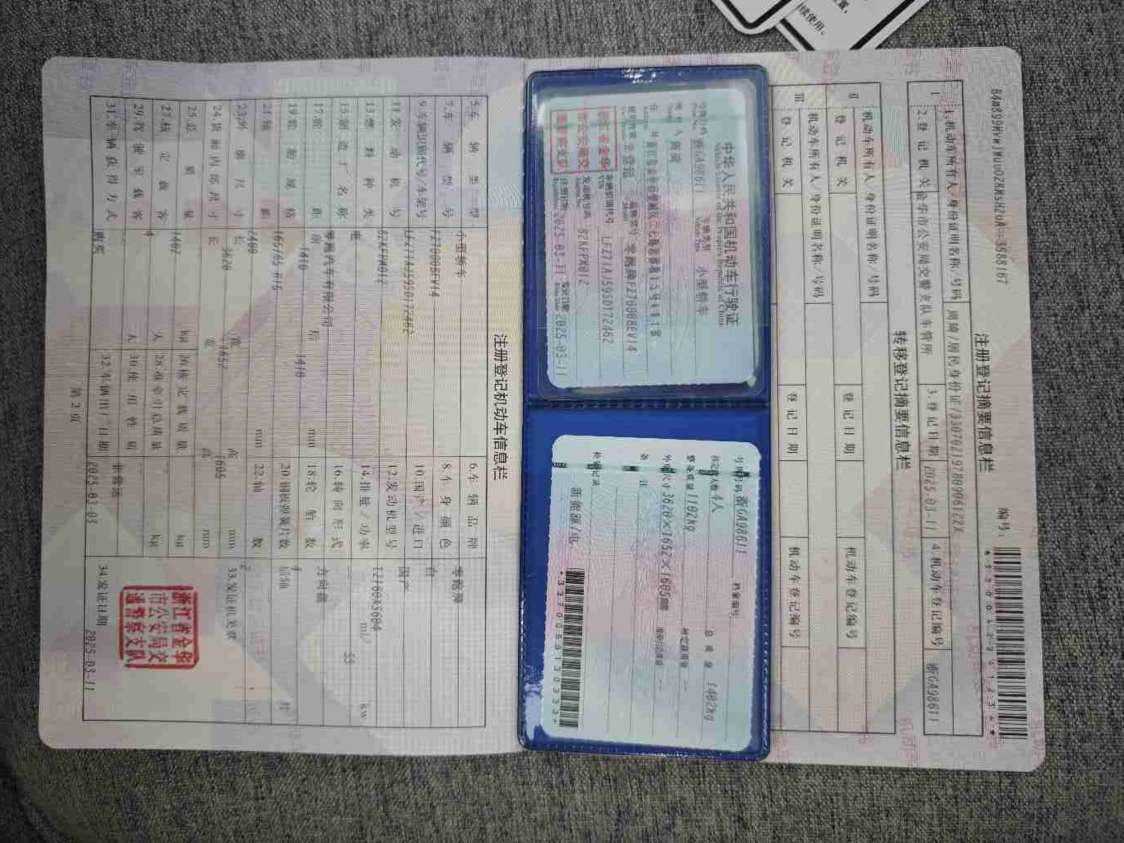 注册登记摘要信息栏
编号:
1.机动车所有人/身份证明名称/号码
2.登记机关 金华市公安局交警支队车管所
3.登记日期 2025-03-11
4.机动车登记编号 浙GA98611
转移登记摘要信息栏
机动车所有人/身份证明名称/号码
登记机关
登记日期
机动车登记编号
机动车所有人/身份证明名称/号码
登记机关
登记日期
机动车登记编号
中华人民共和国机动车行驶证
Vehicle License of the People's Republic of China
号牌号码 浙GA98611
车辆类型 小型轿车
品牌型号 零跑牌FZ7000BEV14
车辆识别代号 LFZ71AJ59SD172462
发动机号码 82KFPM012
注册日期 2025-03-11
发证日期 2025-03-11
号牌号码 浙GA98611
档案编号
核定载人数 4人
总质量 1482kg
整备质量 1182kg
核定载质量 --
外廓尺寸 3620×1652×1605mm
准牵引总质量 --
备注
检验记录
注册登记机动车信息栏
5.车辆类型 小型轿车
6.车辆品牌 零跑牌
7.车辆型号 FZ7000BEV14
8.车身颜色
9.车辆识别代号/车架号 LFZ71AJ59SD172462
10.国产/进口 国产
11.发动机号 82KFPM012
12.发动机型号 TZ160XS604
13.燃料种类 电
14.排量/功率 ml/ 55 kw
15.制造厂名称 零跑汽车有限公司
16.转向形式 方向盘
17.轮距 前 1410 后 1410 mm
18.轮胎数 4
19.轮胎规格 165/65 R15
20.钢板弹簧片数 后轴
21.轴距 2400 mm
22.轴数 2
23.外廓尺寸 长 3620 宽 1652 高 1605 mm
33.发证机关章
24.货厢内部尺寸 长 宽 高 mm
25.总质量 kg
26.核定载质量 kg
27.核定载客 4 人
28.准牵引总质量 kg
29.驾驶室载客 人
30.使用性质 非营运
31.车辆获得方式 购买
32.车辆出厂日期 2025-03-03
34.发证日期 2025-03-11
浙江省金华
市公安局交
通警察支队
第2页